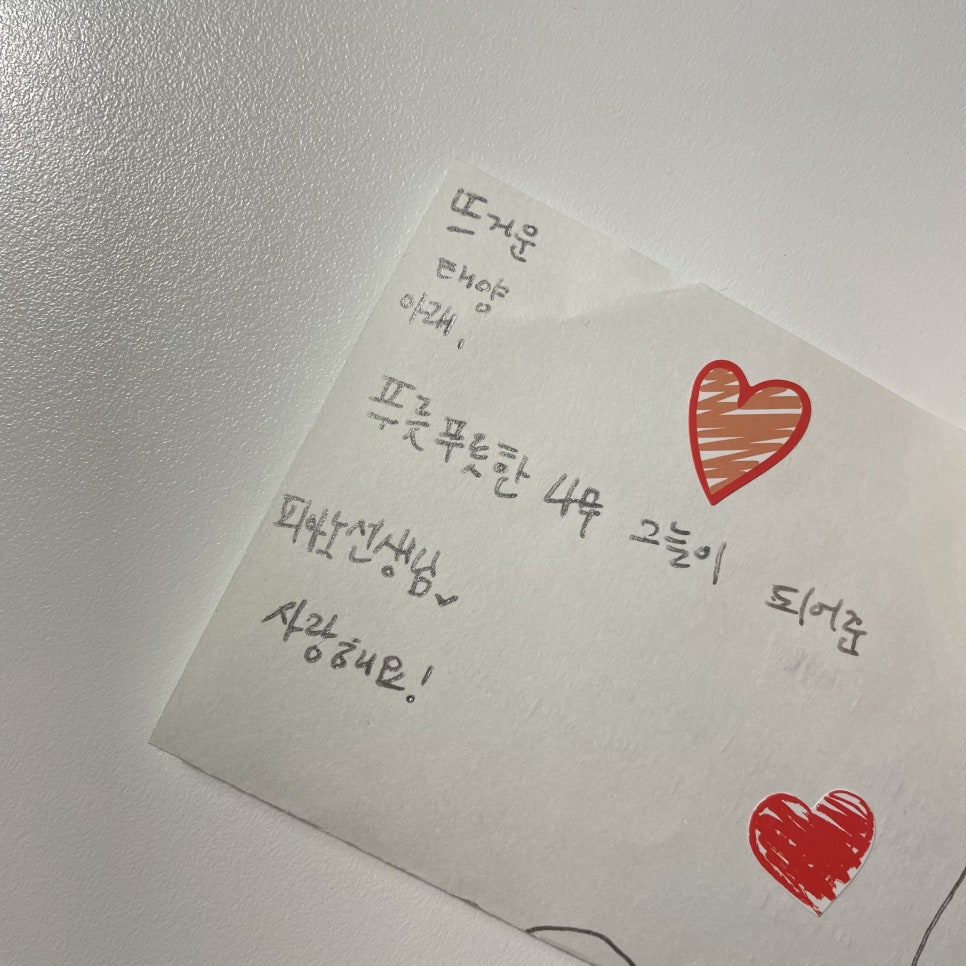 뜨거운
태양
아래,
푸릇푸릇한 나무 그늘이 되어준
피아노선생님
사랑해요!